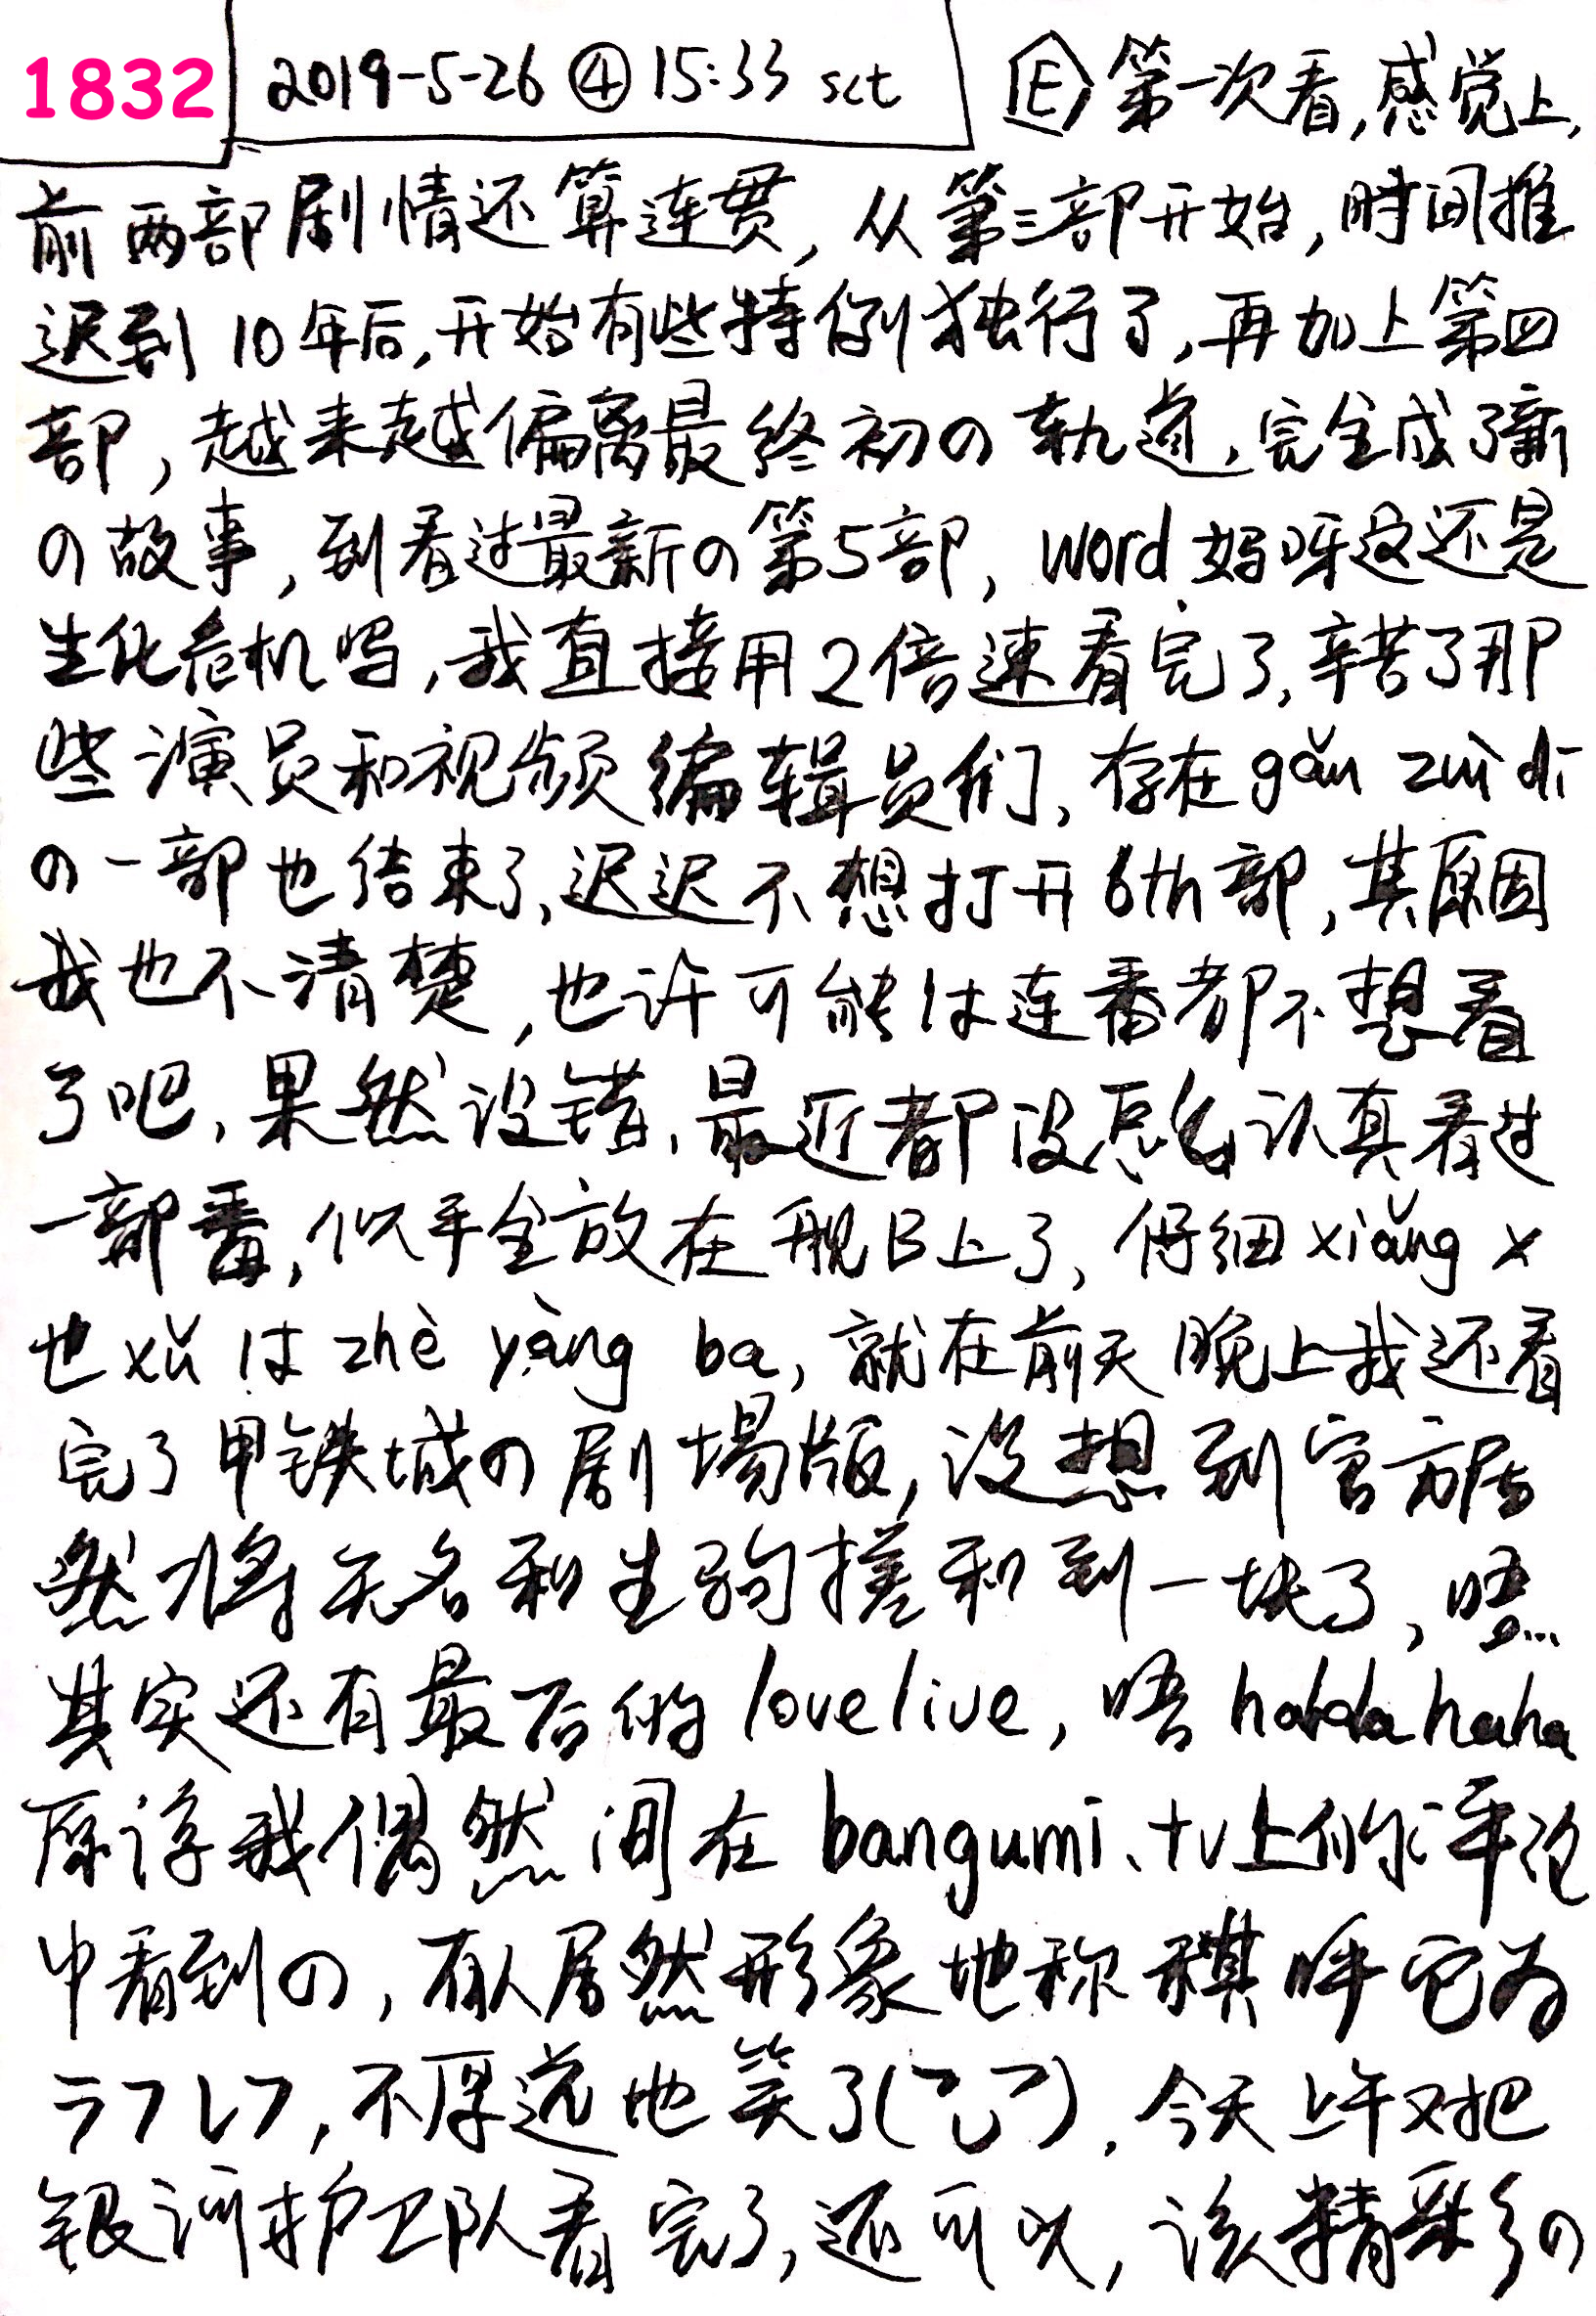 1832 2019-5-26 ④ 15:33 sct Ⓔ 第一次看,感觉上,
前两部剧情还算连贯,从第三部开始,时间推
迟到10年后,开始有些特例独行了,再加上第四
部,越来越偏离最终初の轨道,完全成了新
の故事,到看过最新の第5部,word妈呀这还是
生化危机吗,我直接用2倍速看完了,辛苦了那
些演员和视频编辑员们,存在gǎn zuì dī
の一部也结束了,迟迟不想打开6th部,其原因
我也不清楚,也许可能は连番都不想看
了吧,果然没错,最近都没怎么认真看过
一部番,似乎全放在舰B上了,仔细xiǎng x
也xǔは zhè yàng ba,就在前天晚上我还看
完了甲铁城の剧場版,没想到官方居
然将无名和生驹搓和到一块了,唔...
其实还有最后的lovelive,唔hahahaha
原谅我偶然间在bangumi.tv上的评论
中看到の,有人居然形象地称 呼它为
ラブレフ,不厚道地笑了( ).今天上午又把
银河护卫队看完了,还可以,该精彩多の